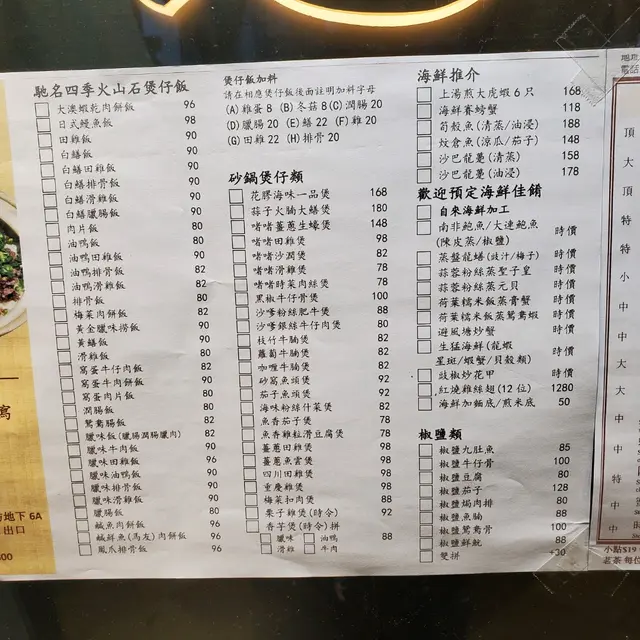 馳名四季火山石煲仔飯
大澳蝦乾肉餅飯 96
日式鰻魚飯 98
田雞飯 90
白鱔飯 90
白鱔田雞飯 90
白鱔排骨飯 90
白鱔滑雞飯 90
白鱔臘腸飯 90
肉片飯 80
油鴨飯 80
油鴨田雞飯 90
油鴨排骨飯 82
油鴨滑雞飯 82
排骨飯 80
梅菜肉餅飯 80
黃金臘味撈飯 90
黃鱔飯 90
滑雞飯 80
窩蛋牛仔肉飯 82
窩蛋牛肉餅飯 90
窩蛋肉片飯 80
潤腸飯 80
鴛鴦腸飯 82
臘味飯(臘腸潤腸臘肉) 82
臘味牛肉飯 90
臘味田雞飯 96
臘味油鴨飯 90
臘味排骨飯 90
臘味滑雞飯 90
臘腸飯 80
鹹魚肉餅飯 90
鹹鮮魚(馬友)肉餅飯 96
鳳爪排骨飯 96
煲仔飯加料
請在相應煲仔飯後面註明加料字母
(A)雞蛋 8 (B)冬菇 8 (C)潤腸 20
(D)臘腸 20 (E)鱔 22 (F)雞 20
(G)田雞 22 (H)排骨 20
砂鍋煲仔類
花膠海味一品煲 168
蒜子火腩大鱔煲 180
啫啫薑蔥生蠔煲 148
啫啫田雞煲 98
啫啫沙潤煲 82
啫啫滑雞煲 78
啫啫時菜肉絲煲 78
黑椒牛仔骨煲 100
沙爹粉絲肥牛煲 88
沙爹銀絲牛仔肉煲 80
枝竹牛腩煲 82
蘿蔔牛腩煲 82
咖喱牛腩煲 82
砂窩魚頭煲 92
茄子魚頭煲 92
海味粉絲什菜煲 82
魚香茄子煲 78
魚香雞粒滑豆腐煲 78
薑蔥田雞煲 98
薑蔥魚雲煲 98
四川田雞煲 98
重慶雞煲 98
梅菜扣肉煲 88
栗子雞煲(時令) 92
香芋煲(時令)拼 88
臘味 油鴨
滑雞 牛肉
海鮮推介
上湯煎大虎蝦 6 只 168
海鮮賽螃蟹 118
筍殼魚(清蒸/油浸) 188
炆倉魚(涼瓜/茄子) 148
沙巴龍躉(清蒸) 158
沙巴龍躉(油浸) 178
歡迎預定海鮮佳餚
自來海鮮加工
南非鮑魚/大連鮑魚 時價
(陳皮蒸/椒鹽)
蒸盤龍鱔(豉汁/梅子) 時價
蒜蓉粉絲蒸聖子皇 時價
蒜蓉粉絲蒸元貝 時價
荷葉糯米飯蒸膏蟹 時價
荷葉糯米飯蒸鴛鴦蝦 時價
避風塘炒蟹 時價
生猛海鮮(龍蝦
星斑/蝦蟹/貝殼類) 時價
豉椒炒花甲 時價
紅燒雞絲翅(12 位) 1280
海鮮加麵底/煎米底 50
椒鹽類
椒鹽九肚魚 85
椒鹽牛仔骨 100
椒鹽豆腐 80
椒鹽茄子 128
椒鹽焗肉排 80
椒鹽魚腩 88
椒鹽鴛鴦骨 100
椒鹽鮮魷 88
雙拼 +30
地下 6A
出口
頂
大
頂
特
特
小
中
大
大
中
中
中
特
中
小點$19
茗茶 每位